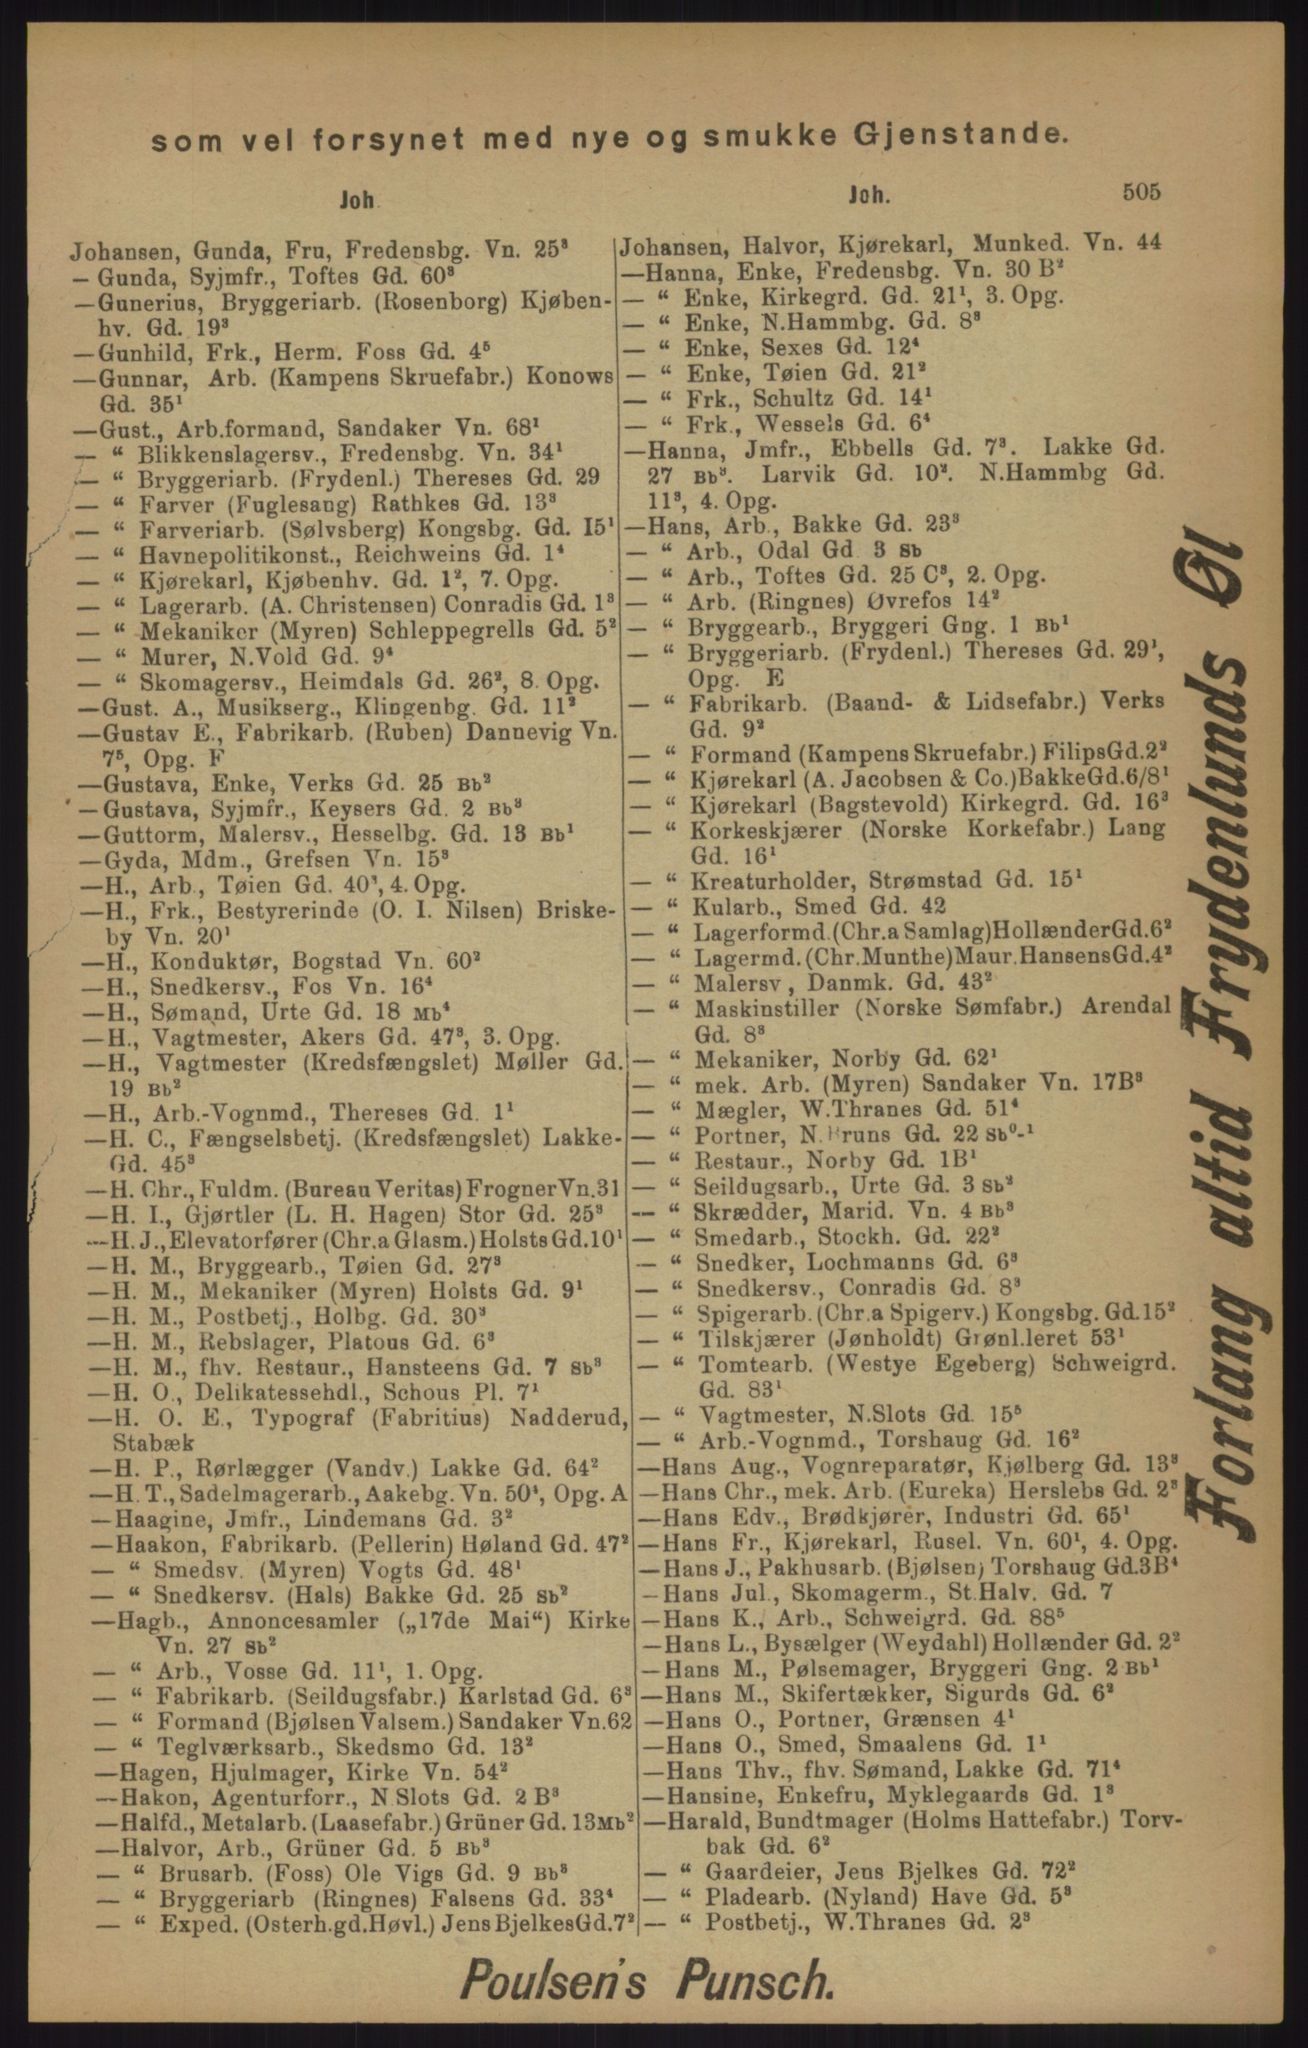 som vel forsynet med nye og smukke Gjenstande.
Joh
Joh.
505
Johansen, Gunda, Fru, Fredensbg. Vn. 25³
— Gunda, Syjmfr., Toftes Gd. 60³
—Gunerius, Bryggeriarb. (Rosenborg) Kjøben-
hv. Gd. 19³
—Gunhild, Frk., Herm. Foss Gd. 4⁵
—Gunnar, Arb. (Kampens Skruefabr.) Konows
Gd. 35¹
—Gust., Arb.formand, Sandaker Vn. 68¹
— “ Blikkenslagersv., Fredensbg. Vn. 34¹
— “ Bryggeriarb. (Frydenl.) Thereses Gd. 29
— “ Farver (Fuglesang) Rathkes Gd. 13³
— “ Farveriarb. (Sølvsberg) Kongsbg. Gd. I5¹
— “ Havnepolitikonst., Reichweins Gd. 1⁴
— “ Kjørekarl, Kjøbenhv. Gd. 1², 7. Opg.
— “ Lagerarb. (A. Christensen) Conradis Gd. 1³
— “ Mekaniker (Myren) Schleppegrells Gd. 5²
— “ Murer, N.Vold Gd. 9⁴
— “ Skomagersv., Heimdals Gd. 26², 8. Opg.
—Gust. A., Musikserg., Klingenbg. Gd. 11²
—Gustav E., Fabrikarb. (Ruben) Dannevig Vn.
7⁵, Opg. F
—Gustava, Enke, Verks Gd. 25 Bb²
—Gustava, Syjmfr., Keysers Gd. 2 Bb³
—Guttorm, Malersv., Hesselbg. Gd. 13 Bb¹
—Gyda, Mdm., Grefsen Vn. 15³
—H., Arb., Tøien Gd. 40³, 4. Opg.
—H., Frk., Bestyrerinde (O. I. Nilsen) Briske-
by Vn. 20¹
—H., Konduktør, Bogstad Vn. 60²
—H., Snedkersv., Fos Vn. 16⁴
—H., Sømand, Urte Gd. 18 Mb⁴
—H., Vagtmester, Akers Gd. 47³, 3. Opg.
—H., Vagtmester (Kredsfængslet) Møller Gd.
19 Bb²
—H., Arb.-Vognmd., Thereses Gd. 1¹
—H. C., Fængselsbetj. (Kredsfængslet) Lakke-
Gd. 45³
—H. Chr., Fuldm. (Bureau Veritas) Frogner Vn. 31
—H. I., Gjørtler (L. H. Hagen) Stor Gd. 25³
—H. J., Elevatorfører (Chr.a Glasm.) Holsts Gd. 10¹
—H. M., Bryggearb., Tøien Gd. 27³
—H. M., Mekaniker (Myren) Holsts Gd. 9¹
—H. M., Postbetj., Holbg. Gd. 30³
—H. M., Rebslager, Platous Gd. 6³
—H. M., fhv. Restaur., Hansteens Gd. 7 Sb³
—H. O., Delikatessehdl., Schous Pl. 7¹
—H. O. E., Typograf (Fabritius) Nadderud,
Stabæk
—H. P., Rørlægger (Vandv.) Lakke Gd. 64²
—H. T., Sadelmagerarb., Aakebg. Vn. 50⁴, Opg. A
—Haagine, Jmfr., Lindemans Gd. 3²
—Haakon, Fabrikarb. (Pellerin) Høland Gd. 47²
— “ Smedsv. (Myren) Vogts Gd. 48¹
— “ Snedkersv. (Hals) Bakke Gd. 25 Sb²
—Hagb., Annoncesamler („17de Mai“) Kirke
Vn. 27 Sb²
— “ Arb., Vosse Gd. 11¹, 1. Opg.
— “ Fabrikarb. (Seildugsfabr.) Karlstad Gd. 6³
— “ Formand (Bjølsen Valsem.) Sandaker Vn. 62
— “ Teglværksarb., Skedsmo Gd. 13²
—Hagen, Hjulmager, Kirke Vn. 54²
—Hakon, Agenturforr., N Slots Gd. 2 B³
—Halfd., Metalarb. (Laasefabr.) Grüner Gd. 13 Mb²
—Halvor, Arb., Grüner Gd. 5 Bb³
— “ Brusarb. (Foss) Ole Vigs Gd. 9 Bb³
— “ Bryggeriarb (Ringnes) Falsens Gd. 33⁴
— “ Exped. (Osterh.gd.Høvl.) Jens Bjelkes Gd. 7²
Johansen, Halvor, Kjørekarl, Munked. Vn. 44
—Hanna, Enke, Fredensbg. Vn. 30 B²
— “ Enke, Kirkegrd. Gd. 21¹, 3. Opg.
— “ Enke, N.Hammbg. Gd. 8³
— “ Enke, Sexes Gd. 12⁴
— “ Enke, Tøien Gd. 21²
— “ Frk., Schultz Gd. 14¹
— “ Frk., Wessels Gd. 6⁴
—Hanna, Jmfr., Ebbells Gd. 7³. Lakke Gd.
27 Bb³. Larvik Gd. 10². N.Hammbg Gd.
11³, 4. Opg.
—Hans, Arb., Bakke Gd. 23³
— “ Arb., Odal Gd 3 Sb
— “ Arb., Toftes Gd. 25 C³, 2. Opg.
— “ Arb. (Ringnes) Øvrefos 14²
— “ Bryggearb., Bryggeri Gng. 1 Bb¹
— “ Bryggeriarb. (Frydenl.) Thereses Gd. 29¹,
Opg. E
— “ Fabrikarb. (Baand- & Lidsefabr.) Verks
Gd. 9²
— “ Formand (Kampens Skruefabr.) Filips Gd. 2²
— “ Kjørekarl (A. Jacobsen & Co.) Bakke Gd. 6/8¹
— “ Kjørekarl (Bagstevold) Kirkegrd. Gd. 16³
— “ Korkeskjærer (Norske Korkefabr.) Lang
Gd. 16¹
— “ Kreaturholder, Strømstad Gd. 15¹
— “ Kularb., Smed Gd. 42
— “ Lagerformd. (Chr.a Samlag) Hollænder Gd. 6²
— “ Lagermd. (Chr. Munthe) Maur. Hansens Gd. 4²
— “ Malersv , Danmk. Gd. 43²
— “ Maskinstiller (Norske Sømfabr.) Arendal
Gd. 8³
— “ Mekaniker, Norby Gd. 62¹
— “ mek. Arb. (Myren) Sandaker Vn. 17B³
— “ Mægler, W.Thranes Gd. 51⁴
— “ Portner, N.Bruns Gd. 22 Sb⁰-¹
— “ Restaur., Norby Gd. 1B¹
— “ Seildugsarb., Urte Gd. 3 Sb²
— “ Skrædder, Marid. Vn. 4 Bb³
— “ Smedarb., Stockh. Gd. 22²
— “ Snedker, Lochmanns Gd. 6³
— “ Snedkersv., Conradis Gd. 8³
— “ Spigerarb. (Chr.a Spigerv.) Kongsbg. Gd. 15²
— “ Tilskjærer (Jønholdt) Grønl.leret 53¹
— “ Tomtearb. (Westye Egeberg) Schweigrd.
Gd. 83¹
— “ Vagtmester, N.Slots Gd. 15⁵
— “ Arb.-Vognmd., Torshaug Gd. 16²
—Hans Aug., Vognreparatør, Kjølberg Gd. 13³
—Hans Chr., mek. Arb. (Eureka) Herslebs Gd. 2³
—Hans Edv., Brødkjører, Industri Gd. 65¹
—Hans Fr., Kjørekarl, Rusel. Vn. 60¹, 4. Opg.
—Hans J., Pakhusarb. (Bjølsen) Torshaug Gd. 3B⁴
—Hans Jul., Skomagerm., St.Halv. Gd. 7
—Hans K., Arb., Schweigrd. Gd. 88⁵
—Hans L., Bysælger (Weydahl) Hollænder Gd. 2²
—Hans M., Pølsemager, Bryggeri Gng. 2 Bb¹
—Hans M., Skifertækker, Sigurds Gd. 6²
—Hans O., Portner, Grænsen 4¹
—Hans O., Smed, Smaalens Gd. 1¹
—Hans Thv., fhv. Sømand, Lakke Gd. 71⁴
—Hansine, Enkefru, Myklegaards Gd. 1³
—Harald, Bundtmager (Holms Hattefabr.) Torv-
bak Gd. 6²
— “ Gaardeier, Jens Bjelkes Gd. 72²
— “ Pladearb. (Nyland) Have Gd. 5³
— “ Postbetj., W.Thranes Gd. 2³
Forlang altid Frydenlunds Øl
Poulsen's Punsch.